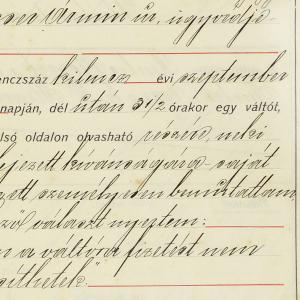 Ármin úr, ügyvédje
enczszáz kilencz évi szeptember
napján, dél után 3 1/2 órakor egy váltót,
lsó oldalon olvasható részére, neki
fejezett kívánságára saját
zett személyesen bemutattam,
ző választ nyertem:
n a váltóra fizetést nem
síthetek."